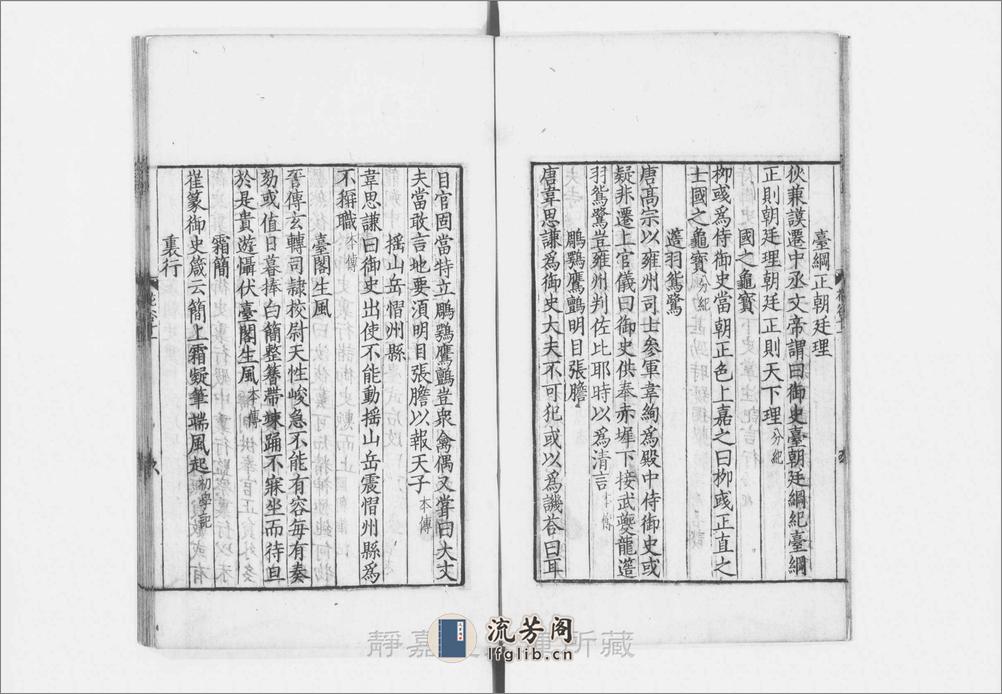 臺綱正朝廷理
狄兼謨遷中丞文帝謂曰御史臺朝廷綱紀臺綱
正則朝廷理朝廷正則天下理分紀
國之龜寶
柳彧為侍御史當朝正色上嘉之曰柳彧正直之
士國之龜寶分紀
簉羽鴛鷺
唐高宗以雍州司士參軍韋絢為殿中侍御史或
疑非遷上官儀曰御史供奉赤墀下接武夔龍簉
羽鴛鷺豈雍州判佐比耶時以為清言本傳
鵰鶚鷹鸇明目張膽
唐韋思謙為御史大夫不可犯或以為譏荅曰耳
目官固當特立鵰鶚鷹鸇豈衆禽偶又嘗曰大丈
夫當敢言地要須明目張膽以報天子本傳
摇山岳慴州縣
韋思謙曰御史出使不能動摇山岳震慴州縣為
不稱職本傳
臺閣生風
晉傅玄轉司隷校尉天性峻急不能有容每有奏
劾或值日暮捧白簡整簪帶竦踊不寐坐而待旦
於是貴遊懾伏臺閣生風本傳
霜簡
崔篆御史箴云簡上霜凝筆端風起初學記
裏行
靜嘉 所藏
流芳阁
lfglib.cn